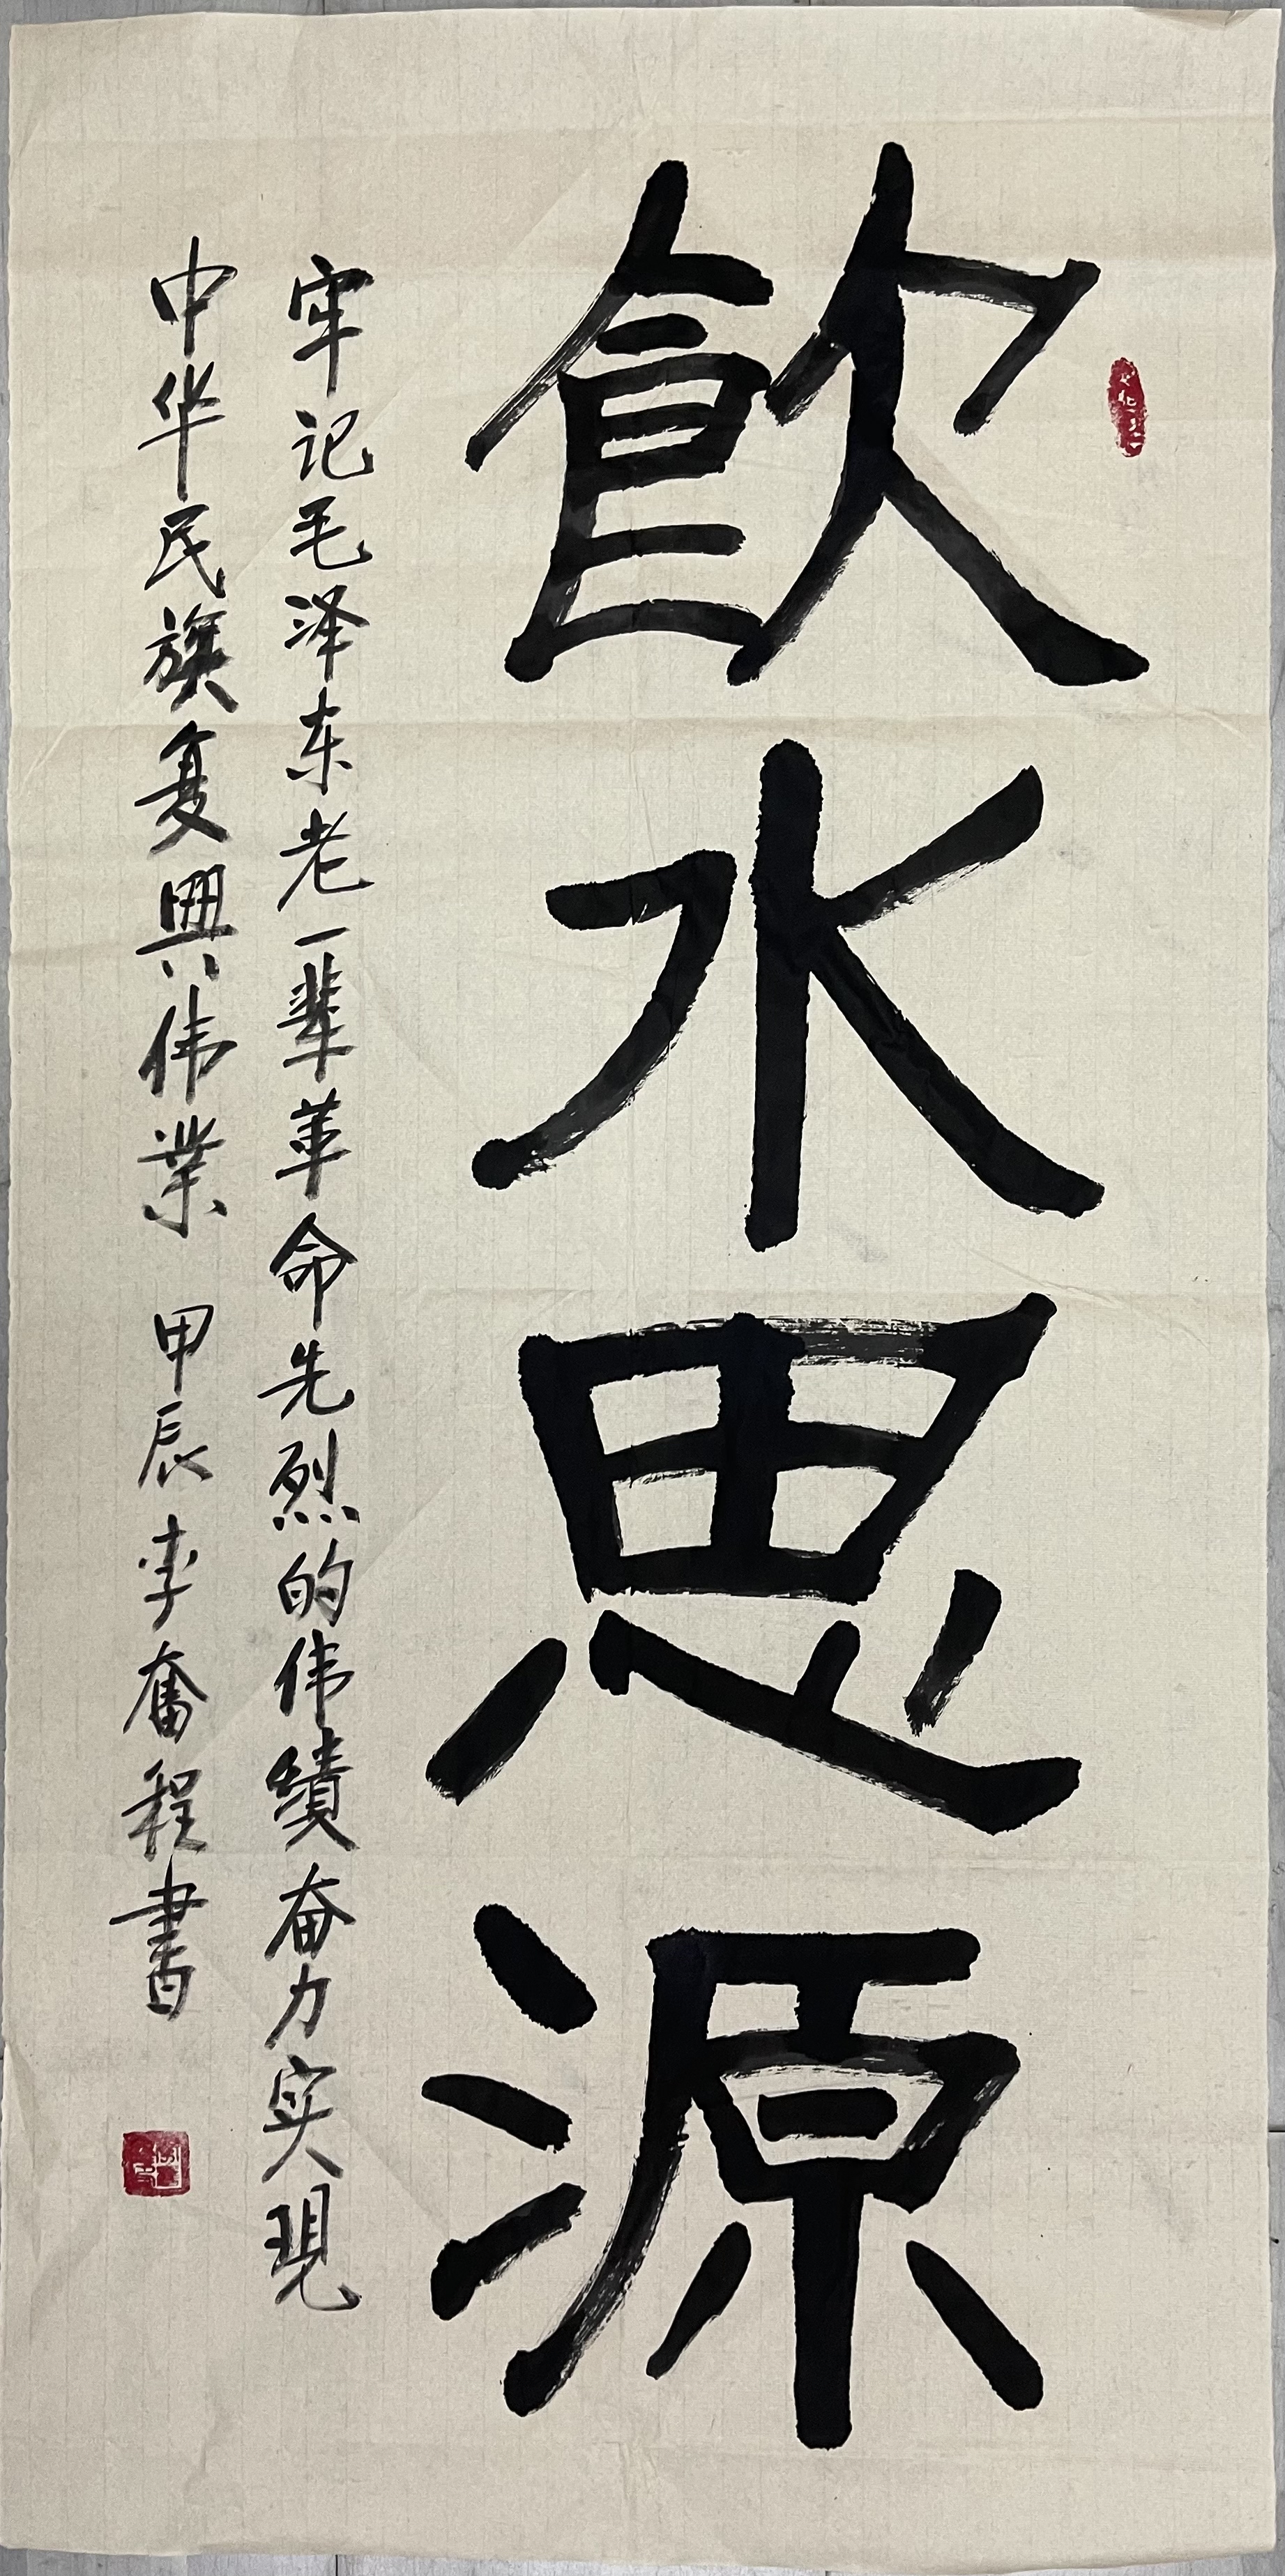 飲水思源
牢记毛泽东老一辈革命先烈的伟績奋力实現
中华民族复興伟業 甲辰李奮程書